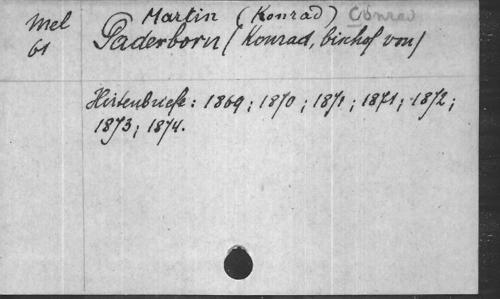 Mel Martin (Konrad) Conrad
61 Paderborn (Konrad, bischof von)
Hirtenbriefe: 1869; 1870; 1871; 1871; 1872;
1873; 1874.